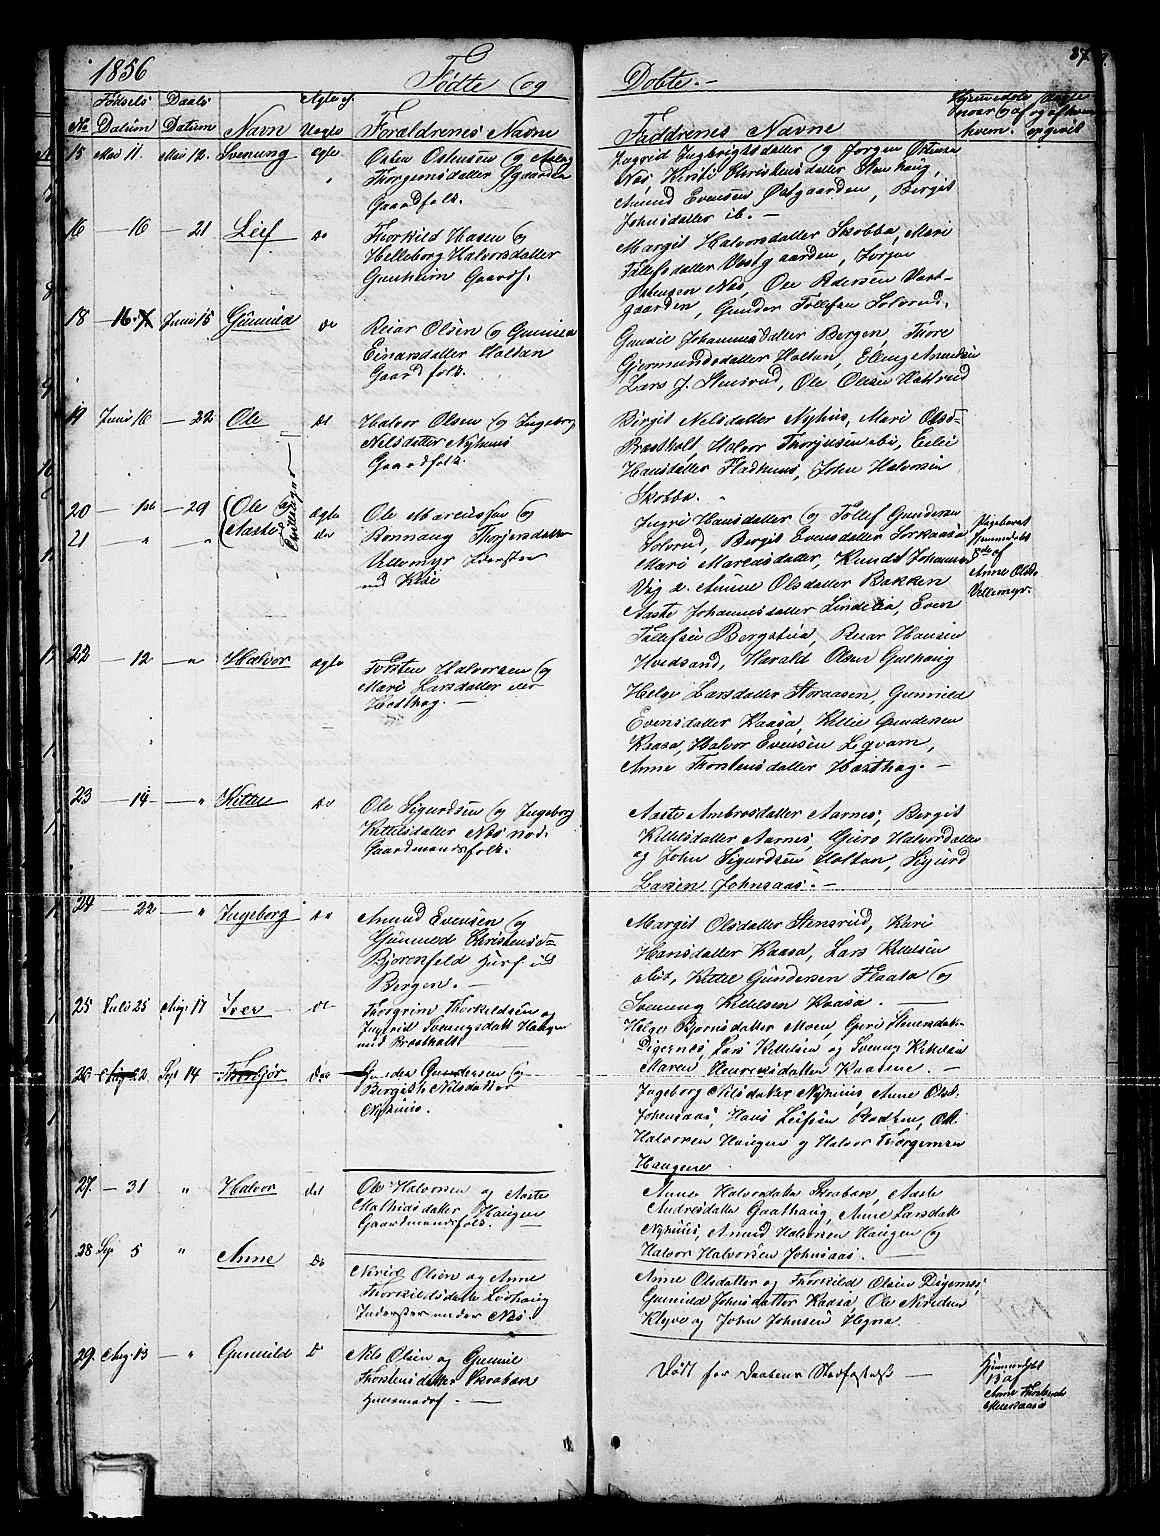 1856 Fødte og Døbte.- 37
Fødsels Daabs Ægte el.
No Datum Datum Navn Uægte Foraldrenes Navne Faddrenes Navne
Hjemmedøbt af hvem og af hvem opgivet
15 Mai 11. Mai 12. Svenung ægte Østen Østensen og Aslaug
Thorgersdatter Ygaarden
Gaardfolk.
Ingrid Ingbrigtsdatter og Jørgen Østensen
Næs, Kirsti Christensdatter Stenhaug,
Amund Evensen Østgaarden, Bergit
Johnsdatter ib. —
16 — 16 — 21 Leif Do Thorkild Hasen og
Helleborg Halvorsdatter
Gunheim Gaardf.
Margit Halvorsdatter Skobba, Mari
Tollefsdatter Vestgaarden, Jørgen
Østensen Næs, Ole Pedersen Vest-
gaarden, Gunder Tollefsen Solverud.
18 — 16 Juni 15 Gunnild do Reiar Olsen og Gunild
Einarsdatter Holtan
Gaardfolk.
Gunnil Johannesdatter Bergen, Thore
Gjermundsdatter Holtan, Elling Amundsen
Lars J. Stensrud, Ole Olsen Hattrud
19 Juni 16 — 22 Ole do Halvor Olsen og Ingeborg
Nilsdatter Nyhuus
Gaardfolk.
Birgit Nilsdatter Nyhus, Mari Olsd=
Brasthalt, Halvor Thorjusen ibi, Eilei
Hansdatter Fladhuus, John Halvorsen
Skobba.
20 — — 29 Ole og ægte Ole Mareusen og
21 — " " Aaste Tvillinger do Ronnaug Thorjersdatter
Vellemyr Inderster
und. Kaae
Ingri Hansdatter og Tollef Gundersen
Solverud, Bergit Evensdatter Sorkaasa
Mari Mareusdatter, Knudt Johannsen
Vig &. Anne Olsdatter Bakken
Aaste Johannesdatter Lindelia, Even
Tollefsen Bergstua Reiar Hansen
Hvedsand, Harald Olsen Gulhaug
Hjemmedøbt
8de af
Anne Olsd.
Vellemyr.
22 — 12 — " Halvor ægte Torsten Halvorsen og
Mari Larsdatter
Hasthag. —
Helge Larsdatter Storaasen, Gunnild
Evensdatter Kaasa, Kittil Gundersen
Kaasa, Halvor Evensen Legvam,
Anne Thorstensdatter Hasthag. —
23 — 14 — " Kittil do Ole Sigurdsen og Ingeborg
Kittilsdatter Næs nod.
Gaardmandsfolk.
Aaste Ambrosdatter Aarnes, Bergit
Kittilsdatter Aarnes, Guro Halvorsdatter
og John Sigurdsen Holtan, Sigurd
Larsen Johnsaas. —
24 — 22 — " Ingeborg do Amund Evensen og
Gunnild Christensd=
Bjorenfeld Husf und
Bergen. —
Margit Olsdatter Stensrud, Kari
Hansdatter Kaasa, Lars Kittilsen
ibid, Kittil Gundersen Flaata og
Svenung Kittilsen Kaasa. —
25 Juli 25 Aug. 17 Iver do Thorgrim Thorkildsen og
Ingrid Svenungsdatt Haugen
und Brasthalt
Helge Bjornsdatter Moen, Guri Steensdat-
Digernes, Lars Kittilsen og Svenung Kittilsen
Maren Henreksdatter Kaasene. —
26 Aug 2 Sept 14 Thorbjør Do Gunder Gundersen og
Bergith Nilsdatter
Nyhuus.
Ingeborg Nilsdatter Nyhuus, Anne Olsd.
Johnsaas, Hans Leifsen Rodtzen, Ole
Halvorsen Haugen og Halvor Thorgrimsen
Haugene.
27. — 31 " Halvor det Ole Halvorsen og Aaste
Mathiasdatter Haugen
Gaardmandsfolk. —
Anne Halvorsdatter Skrabæk, Aaste
Andresdatter Gaathaug, Anne Larsdatt
Nyhuus, Amund Halvorsen Haugen og
Halvor Halvorsen Johnsaas. —
28 Sep 5 " Anne Do Nirid Olsen og Anne
Thorkildsdatter Loshaug
Inderster under Næs.
Anne Olsdatter og Thorkild Olsen Digernes,
Gunnild Johnsdatter Kaasa, Ole Niridsen
Klyve og John Johnsen Hegna.
29. Aug. 13 — " Gunnild D Nils Olsen og Gunnil
Thorstensdatter Skrabæk
Huusmandsf. —
Dødt før Daabens Stadfæstelse —
Hjemmedøbt
13 af
Anne Thorstensd
Meenaasa